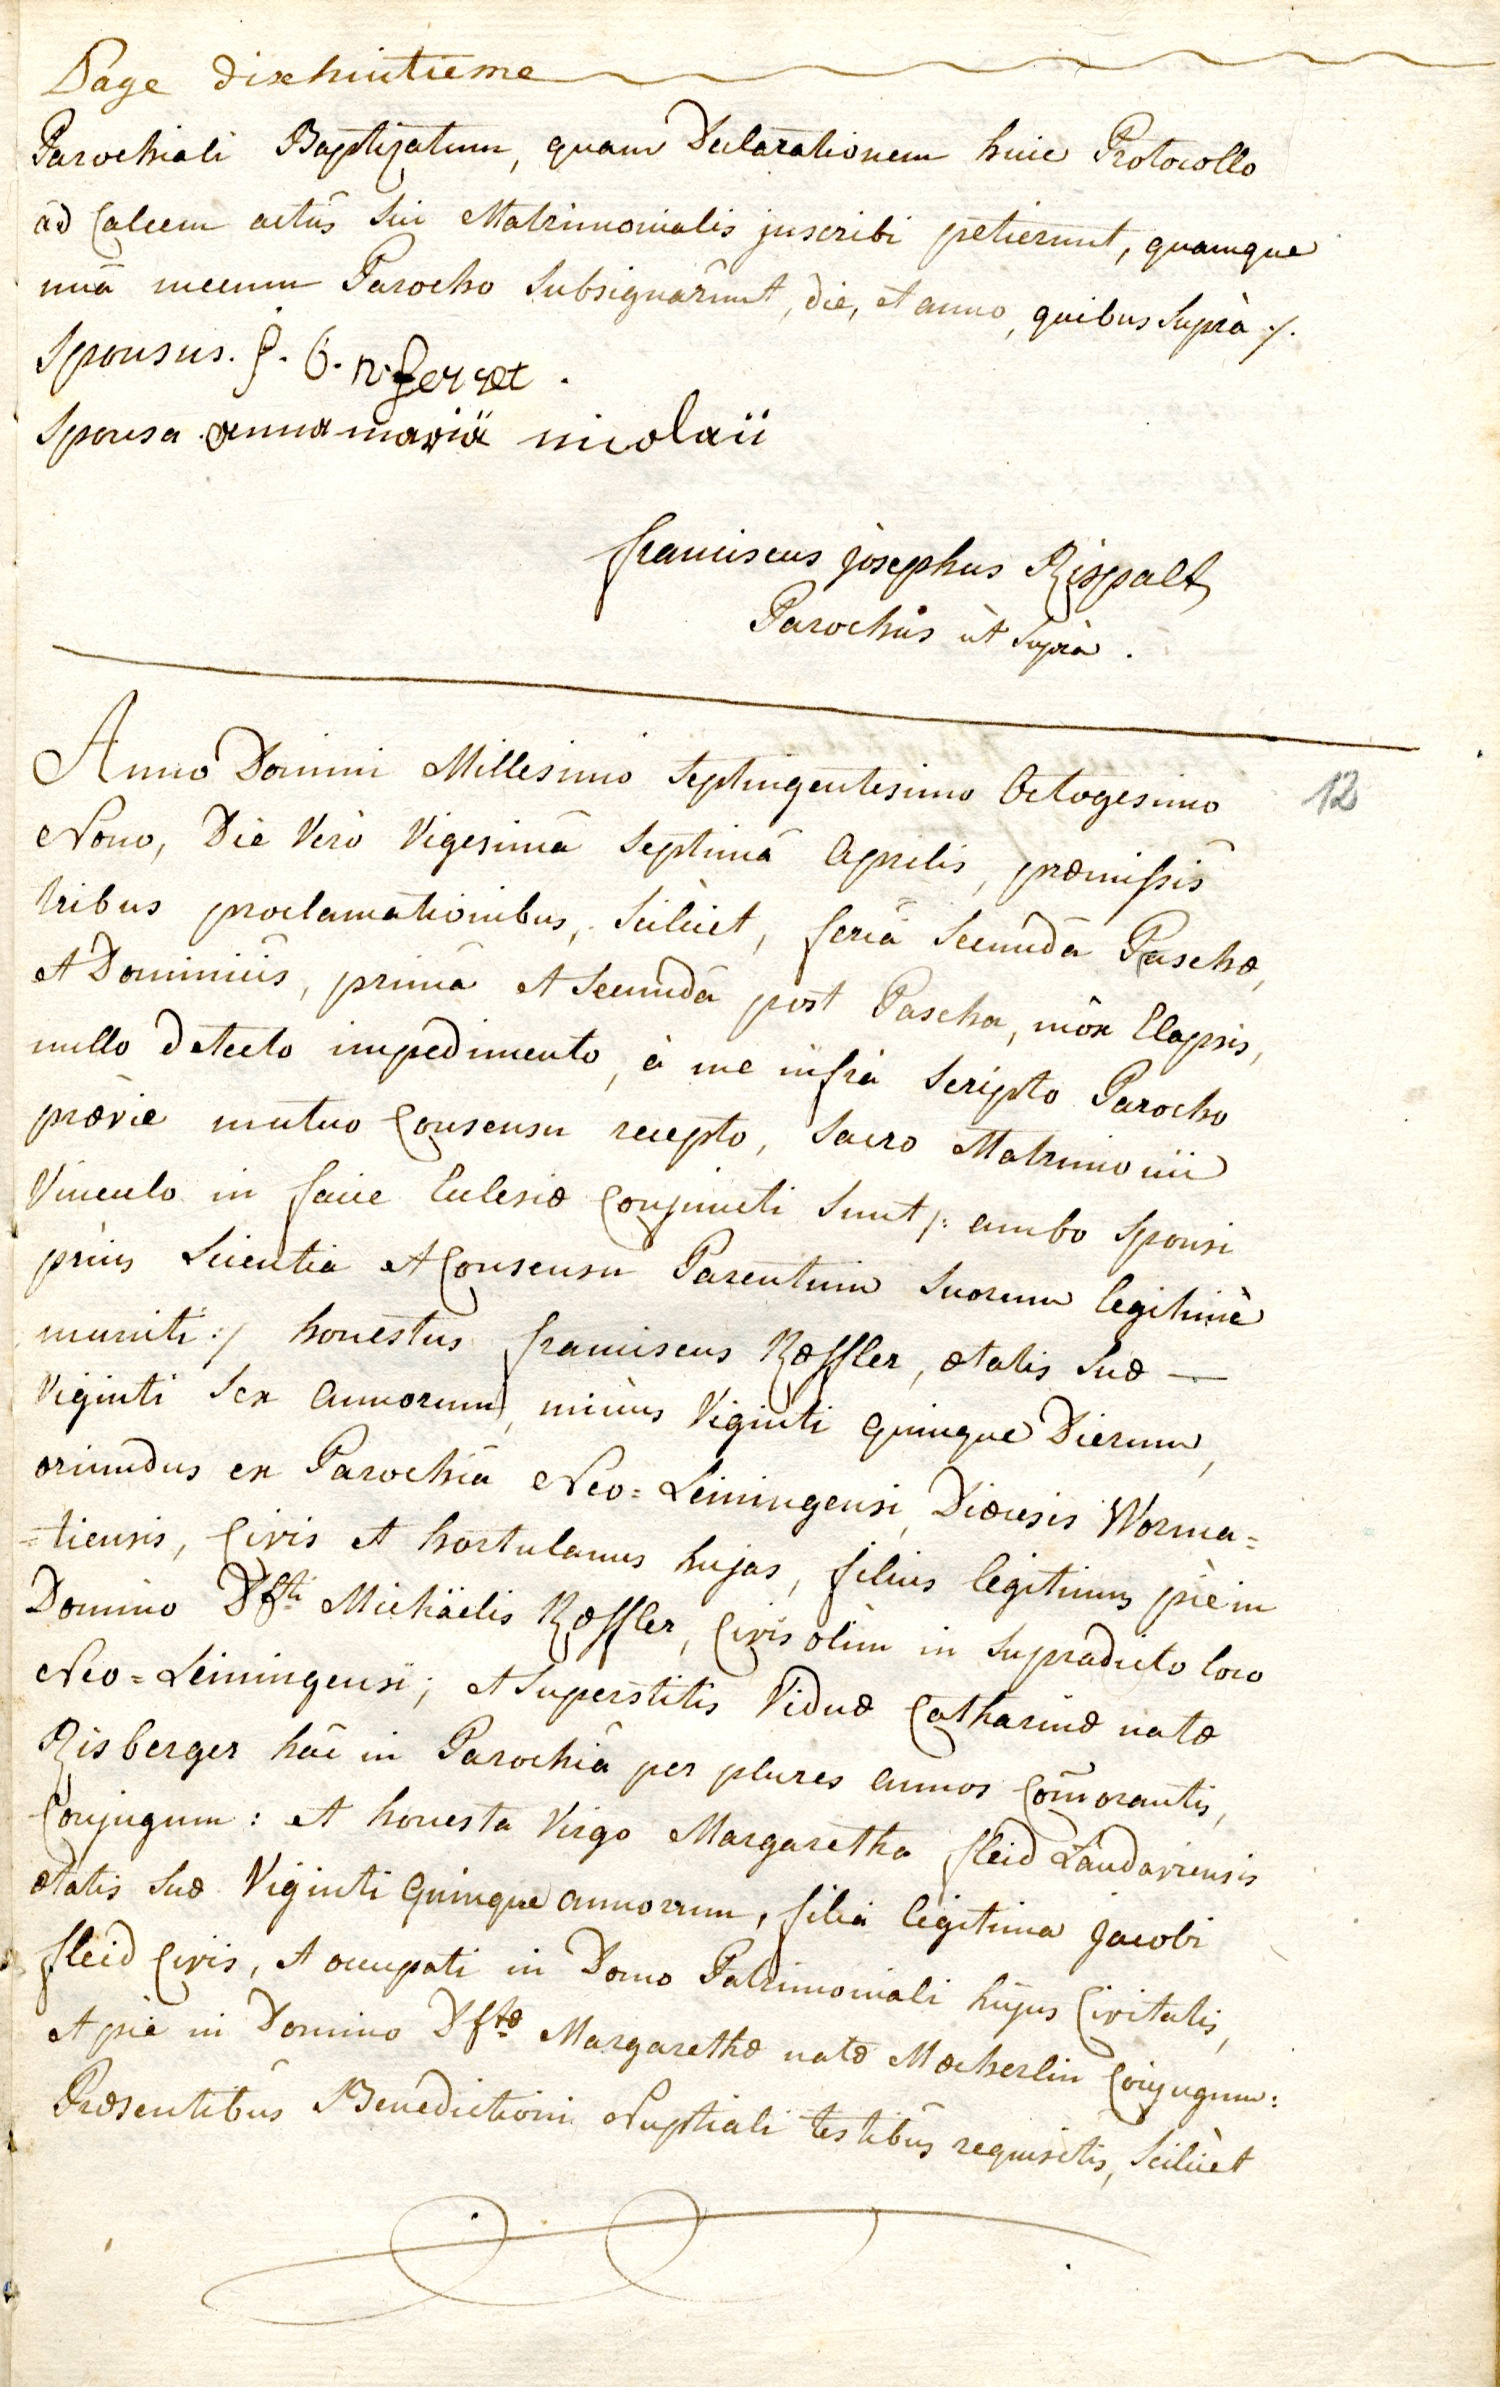 Page dixhuitieme
Parochiali Baptizatum, quam Declarationem huic Protocollo
ad Calcem actûs sui Matrimonialis inscribi petierunt, quamque
unâ mecum Parocho subsignârunt, die, et anno, quibus suprà ./.
Sponsus.
Sponsa. anna maria nicolaii
franciscus josephus Rispalt
Parochus ùt suprà.
Anno Domini Millesimo septingentesimo octogesimo
12
Nono, Die Verò Vigesimâ septimâ aprilis, præmissis
tribus proclamationibus, scilicet, feriâ secundâ Paschæ,
et Dominicis, primâ et secundâ post Pascha, môx Elapsis,
nullo detecto impedimento, à me infrà scripto Parocho
prævie mutuo Consensu recepto, sacro Matrimonii
Vinculo in facie Eclesiæ Conjuncti sunt /: ambo sponsi
priùs scientia et Consensu Parentum suorum legitimè
muniti :/ honestus franciscus Ræffler, ætatis suæ —
Viginti sex annorum, minùs Viginti quinque Dierum,
oriundus ex Parochiâ Neo=Leiningensi, Diœcesis Worma=
=tiensis, Civis et hortulanus hujas, filius legitimus piè in
Domino Dfti Michäelis Ræffler, Civis olim in supradicto loco
Neo=Leiningensi; et superstitis Viduæ Catharinæ natæ
Risberger hâc in Parochiâ per plures annos Com̃orantis,
Conjugum: et honesta Virgo Margaretha fleid Landaviensis
ætatis suæ Viginti quinque annorum, filia legitima jacobi
fleid Civis, et occupati in Domo Patrimoniali hujus Civitatis,
et piè in Domino Dftæ Margarethæ natæ Mæcherlin Conjugum:
Præsentibus Benedictioni Nuptiali testibus requisitis, scilicet